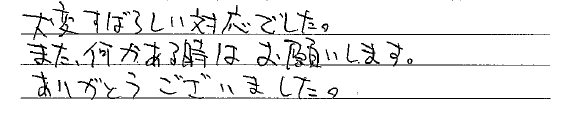 大変すばらしい対応でした。
また、何かある時はお願いします。
ありがとうございました。